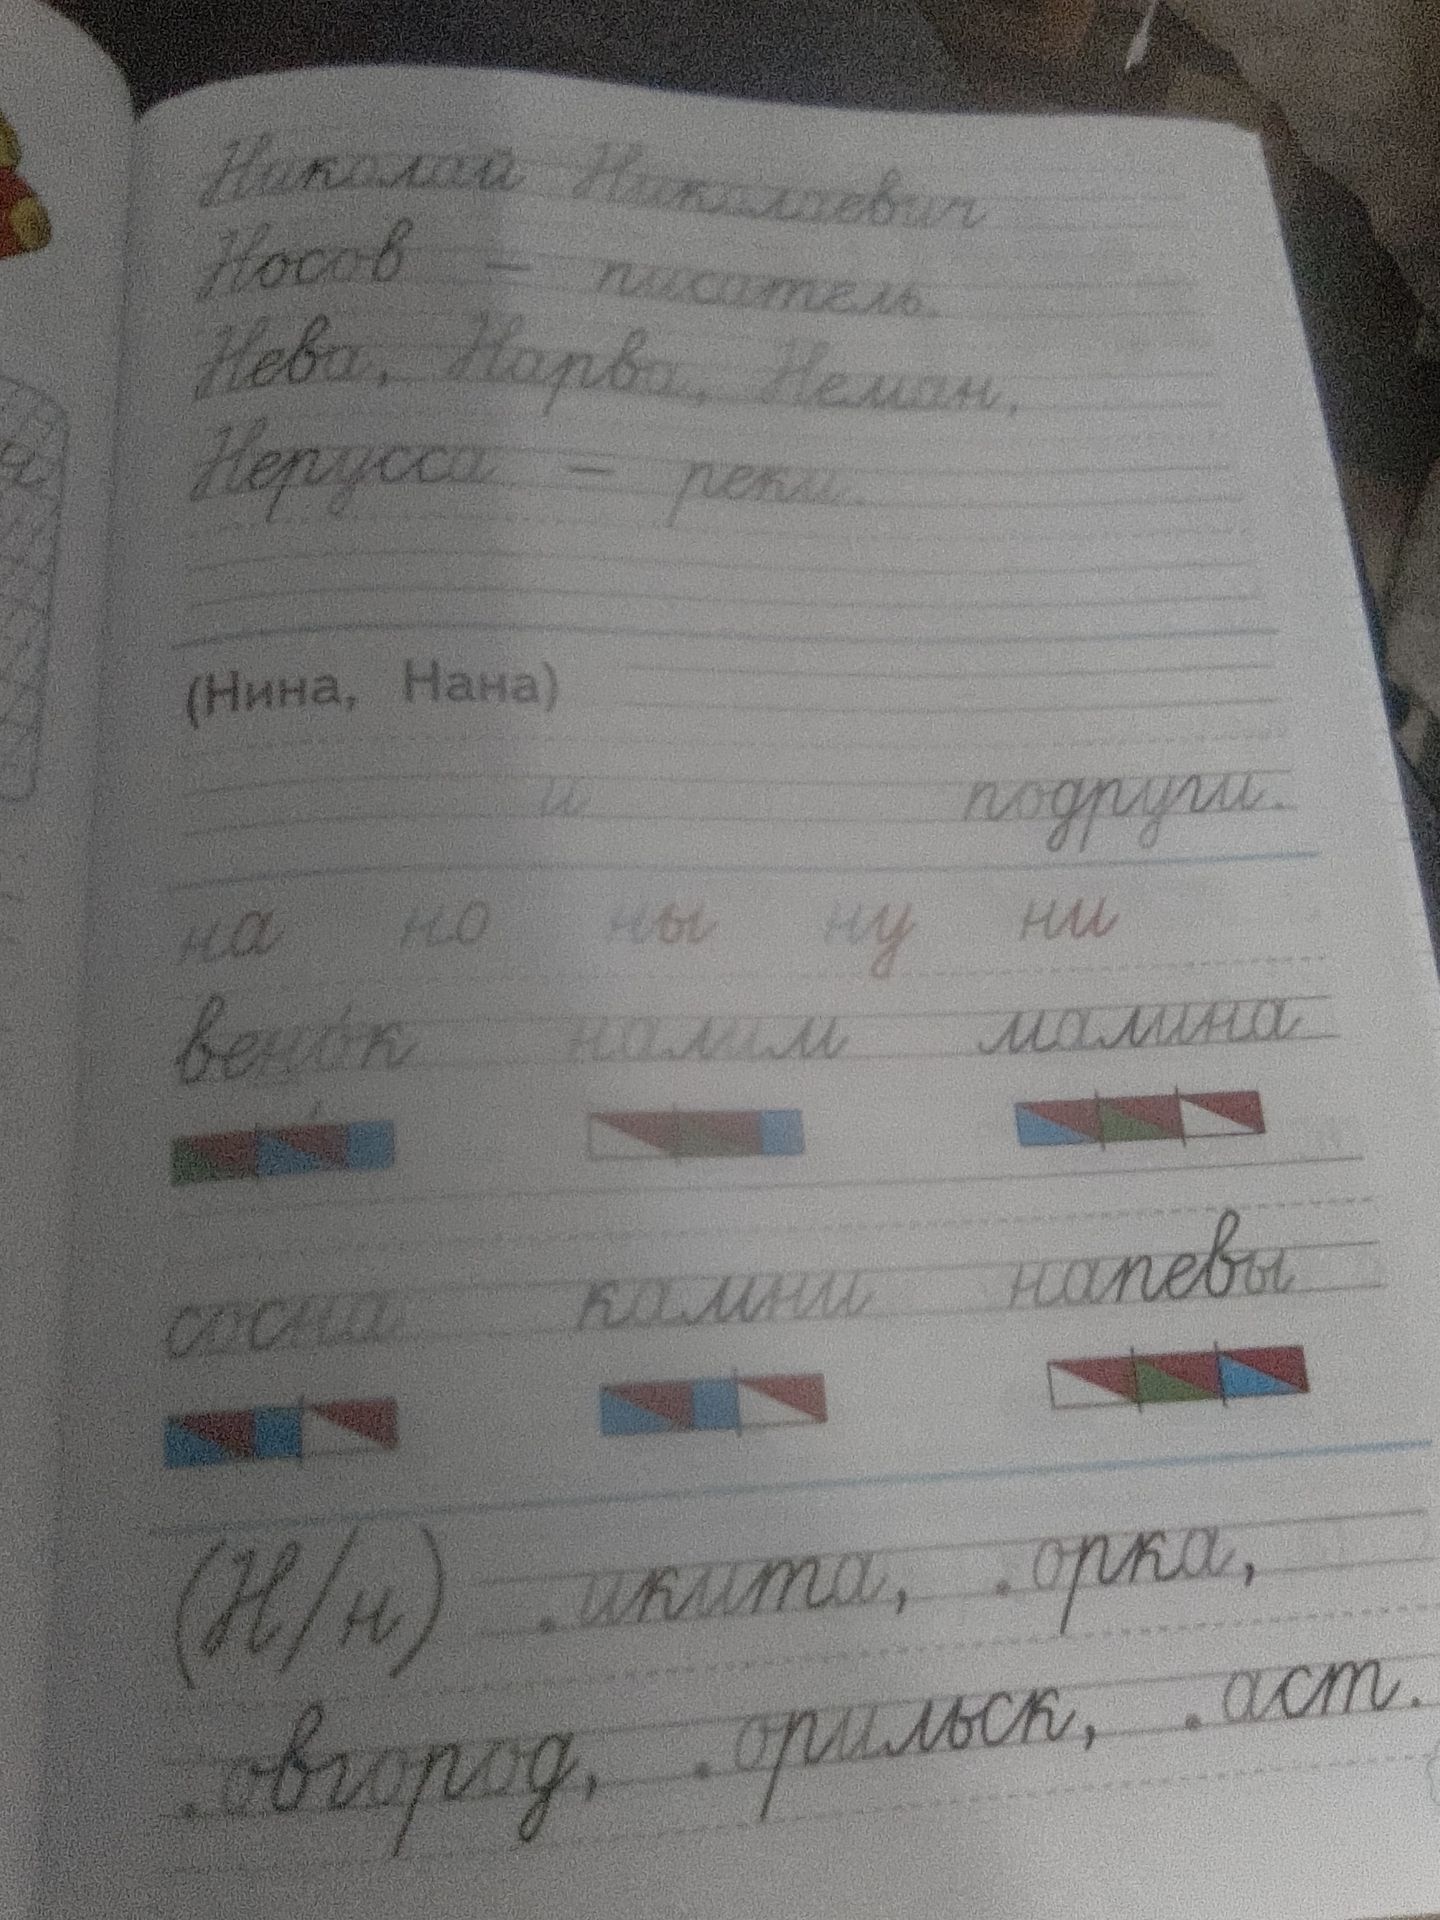 Николай Николаевич
Носов – писатель.
Нева, Нарва, Неман,
Нерусса – реки.
(Нина, Нана)
и подруги.
на но ны ну ни
венок налим малина
сосна камни напевы
(Н/н) .икита, .орка,
.овгород, .орильск, .аст.